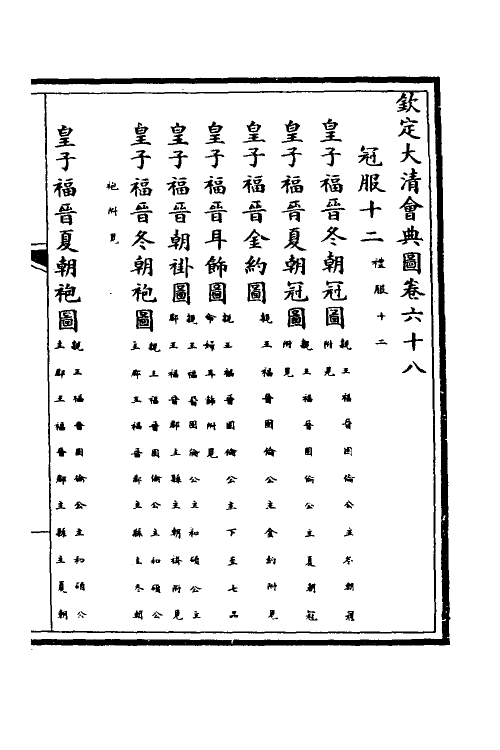 欽定大清會典圖卷六十八
冠服十二 禮服十二
皇子福晉冬朝冠圖 親王福晉固倫公主冬朝冠附見
皇子福晉夏朝冠圖 親王福晉固倫公主夏朝冠附見
皇子福晉金約圖 親王福晉固倫公主金約附見
皇子福晉耳飾圖 親王福晉固倫公主下至七品命婦耳飾附見
皇子福晉朝褂圖 親王福晉固倫公主和碩公主郡王福晉郡主縣主朝褂附見
皇子福晉冬朝袍圖 親王福晉固倫公主和碩公主郡王福晉郡主縣主冬朝袍附見
皇子福晉夏朝袍圖 親王福晉固倫公主和碩公主郡王福晉郡主縣主夏朝